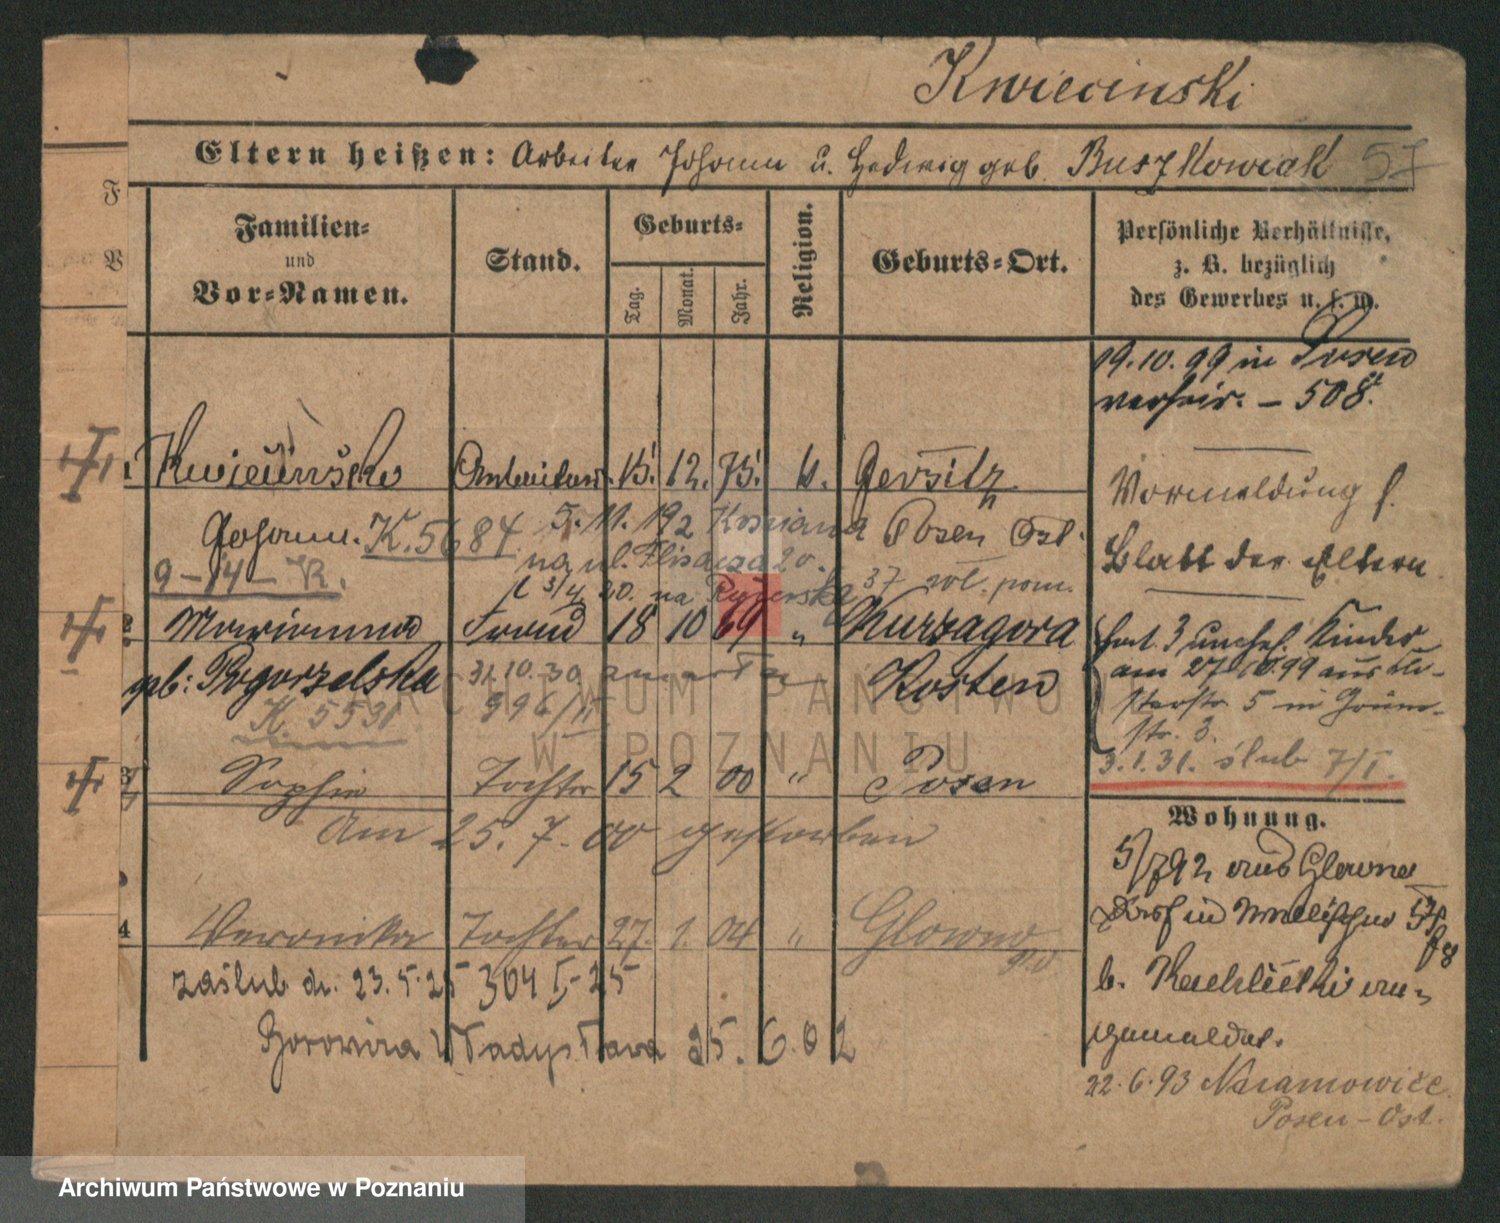 Kwiecinski
Eltern heißen: Arbeiter Johann u. Hedwig geb. Buszkowiak 57
Familien-
und
Vor-Namen.
Stand.
Geburts-
Tag.
Monat.
Jahr.
Religion.
Geburts-Ort.
Persönliche Verhältnisse,
z. B. bezüglich
des Gewerbes u. s. w.
F
V
19.10.99 in Posen
verheir. – 508.
1 Kwiecinski 15. 12. 75. Gersitz
Vormeldung s.
Johann. K. 5684 5. 11. 19 Posen Ost.
Blatt der Eltern
9 – 14 – R. na ul. 20.
20. na 37
2 Marianna Frau 18 10 69 " Kurzagora
hat 3 unehel. Kinder
geb: Pogorzelska 31.10.30 Kosten
am 27.10.99 aus
K 5531 996/II
5 in
str. 3.
3 Sophie Tochter 15 2 00 " Posen
3.1.31. ślub 7/I.
Am 25. 7. 00 gestorben
Wohnung.
aus Glowno
Dorf in
4 Veronika Tochter 27. 1. 04 " Glowno
zaślub dn. 23. 5. 25 304 I-25
b. an-
gemeldet.
Władysława 25. 6. 02
22. 6. 93 Naramowice
Posen-Ost.
ARCHIWUM PAŃSTWOWE
W POZNANIU
Archiwum Państwowe w Poznaniu